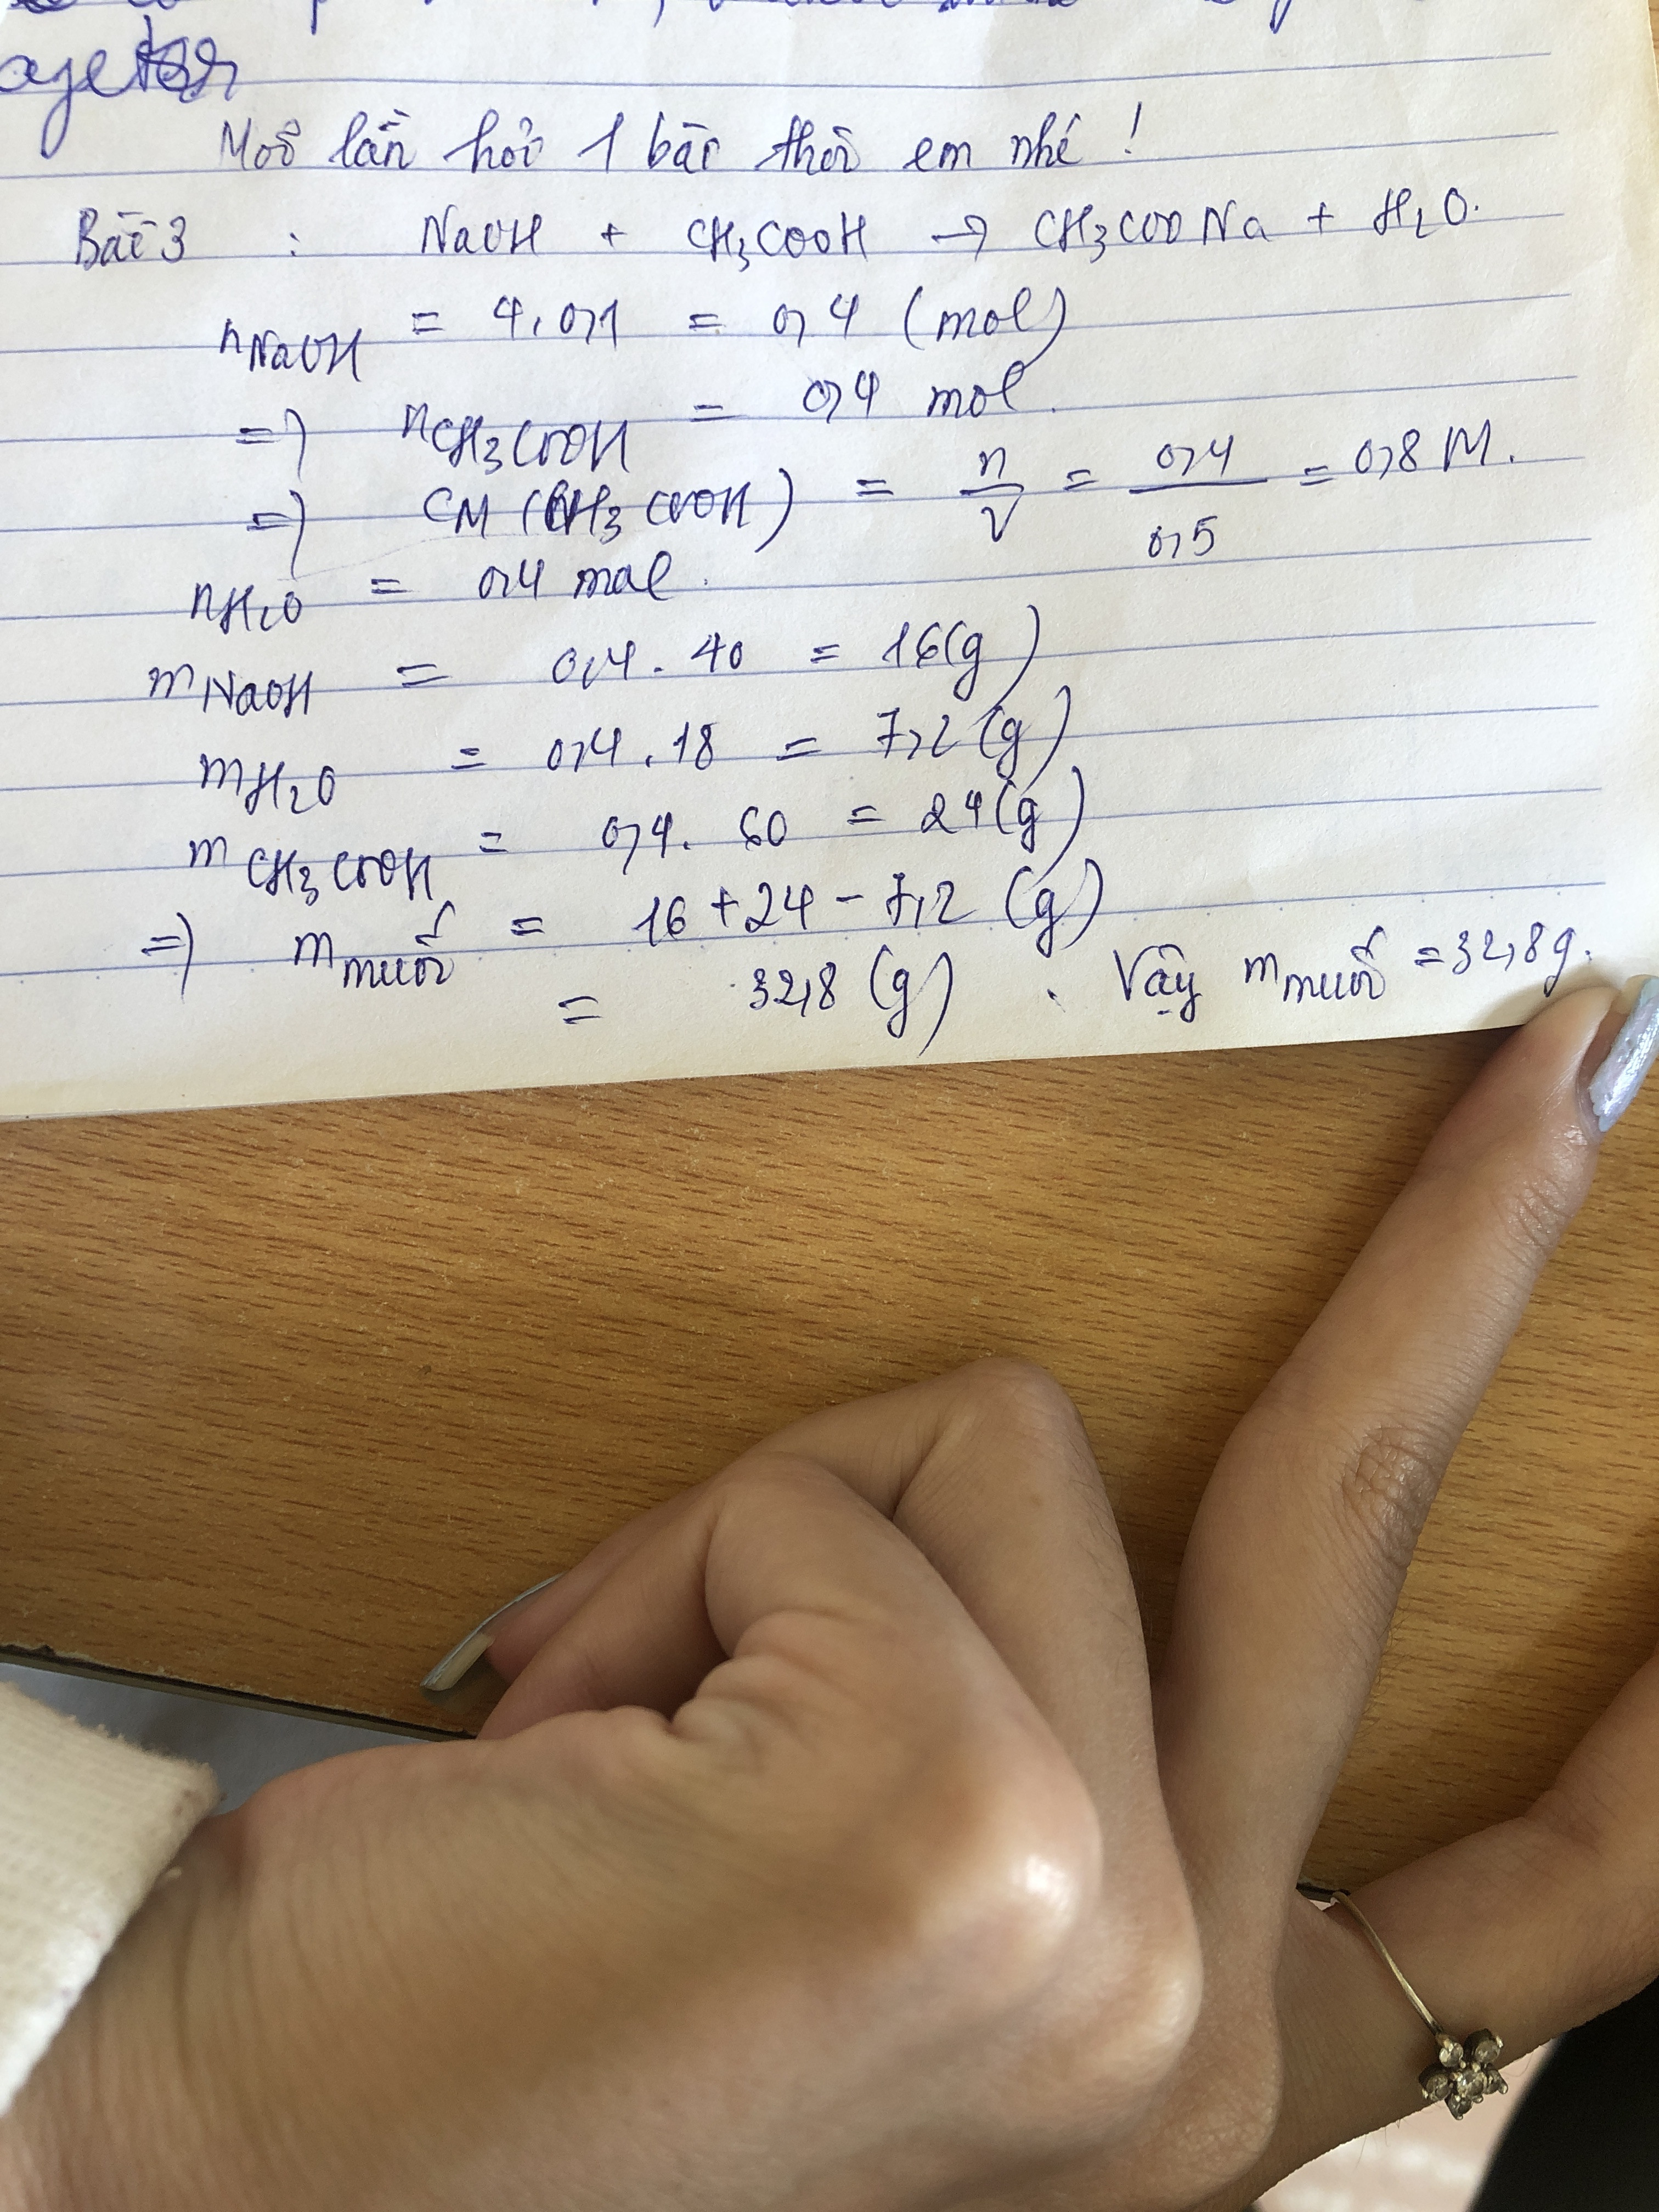 Mỗi lần hỏi 1 bài thôi em nhé !
Bài 3 : NaOH + CH₃COOH → CH₃COONa + H₂O.
nNaOH = 4.0,1 = 0,4 (mol)
=> nCH₃COOH = 0,4 mol.
=> CM (CH₃COOH) = n/V = 0,4/0,5 = 0,8 M.
nH₂O = 0,4 mol.
mNaOH = 0,4 . 40 = 16(g)
mH₂O = 0,4 . 18 = 7,2 (g)
mCH₃COOH = 0,4 . 60 = 24(g)
=> mmuối = 16 + 24 - 7,2 (g)
= 32,8 (g) . Vậy mmuối = 32,8g.